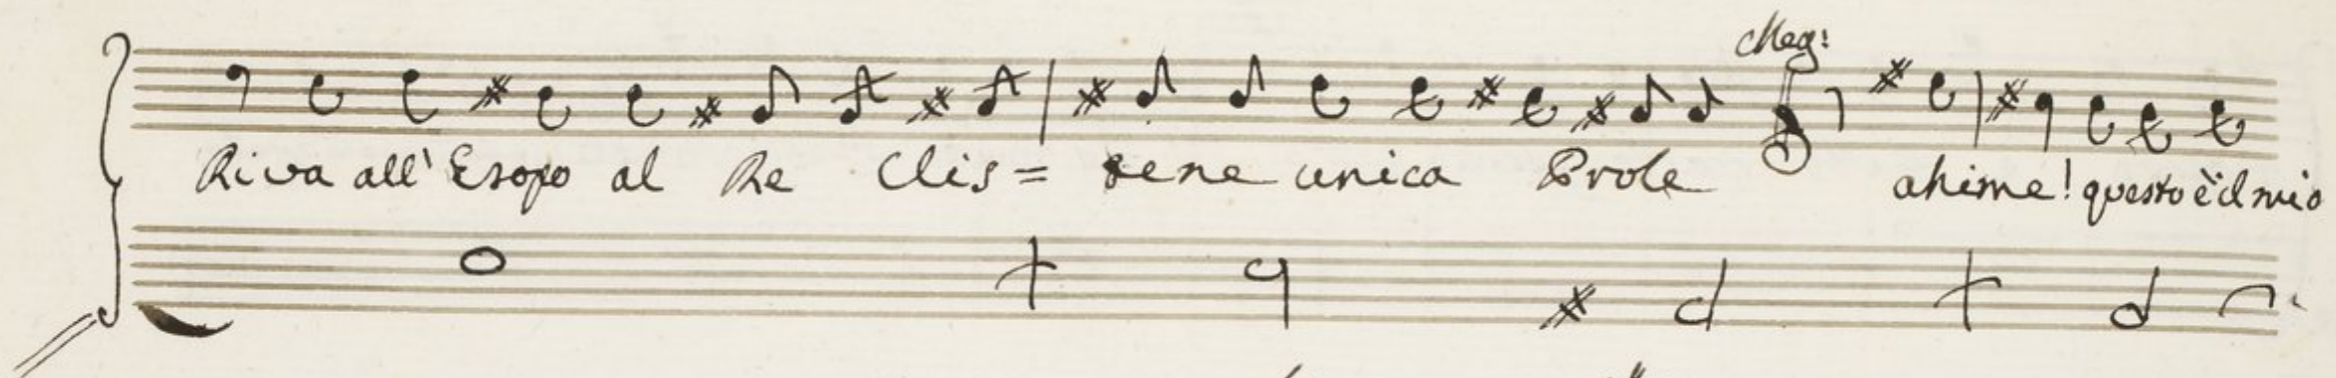 Meg:
Riva all' Esopo al Re Clis= tene unica Prole ahime! questo è il mio